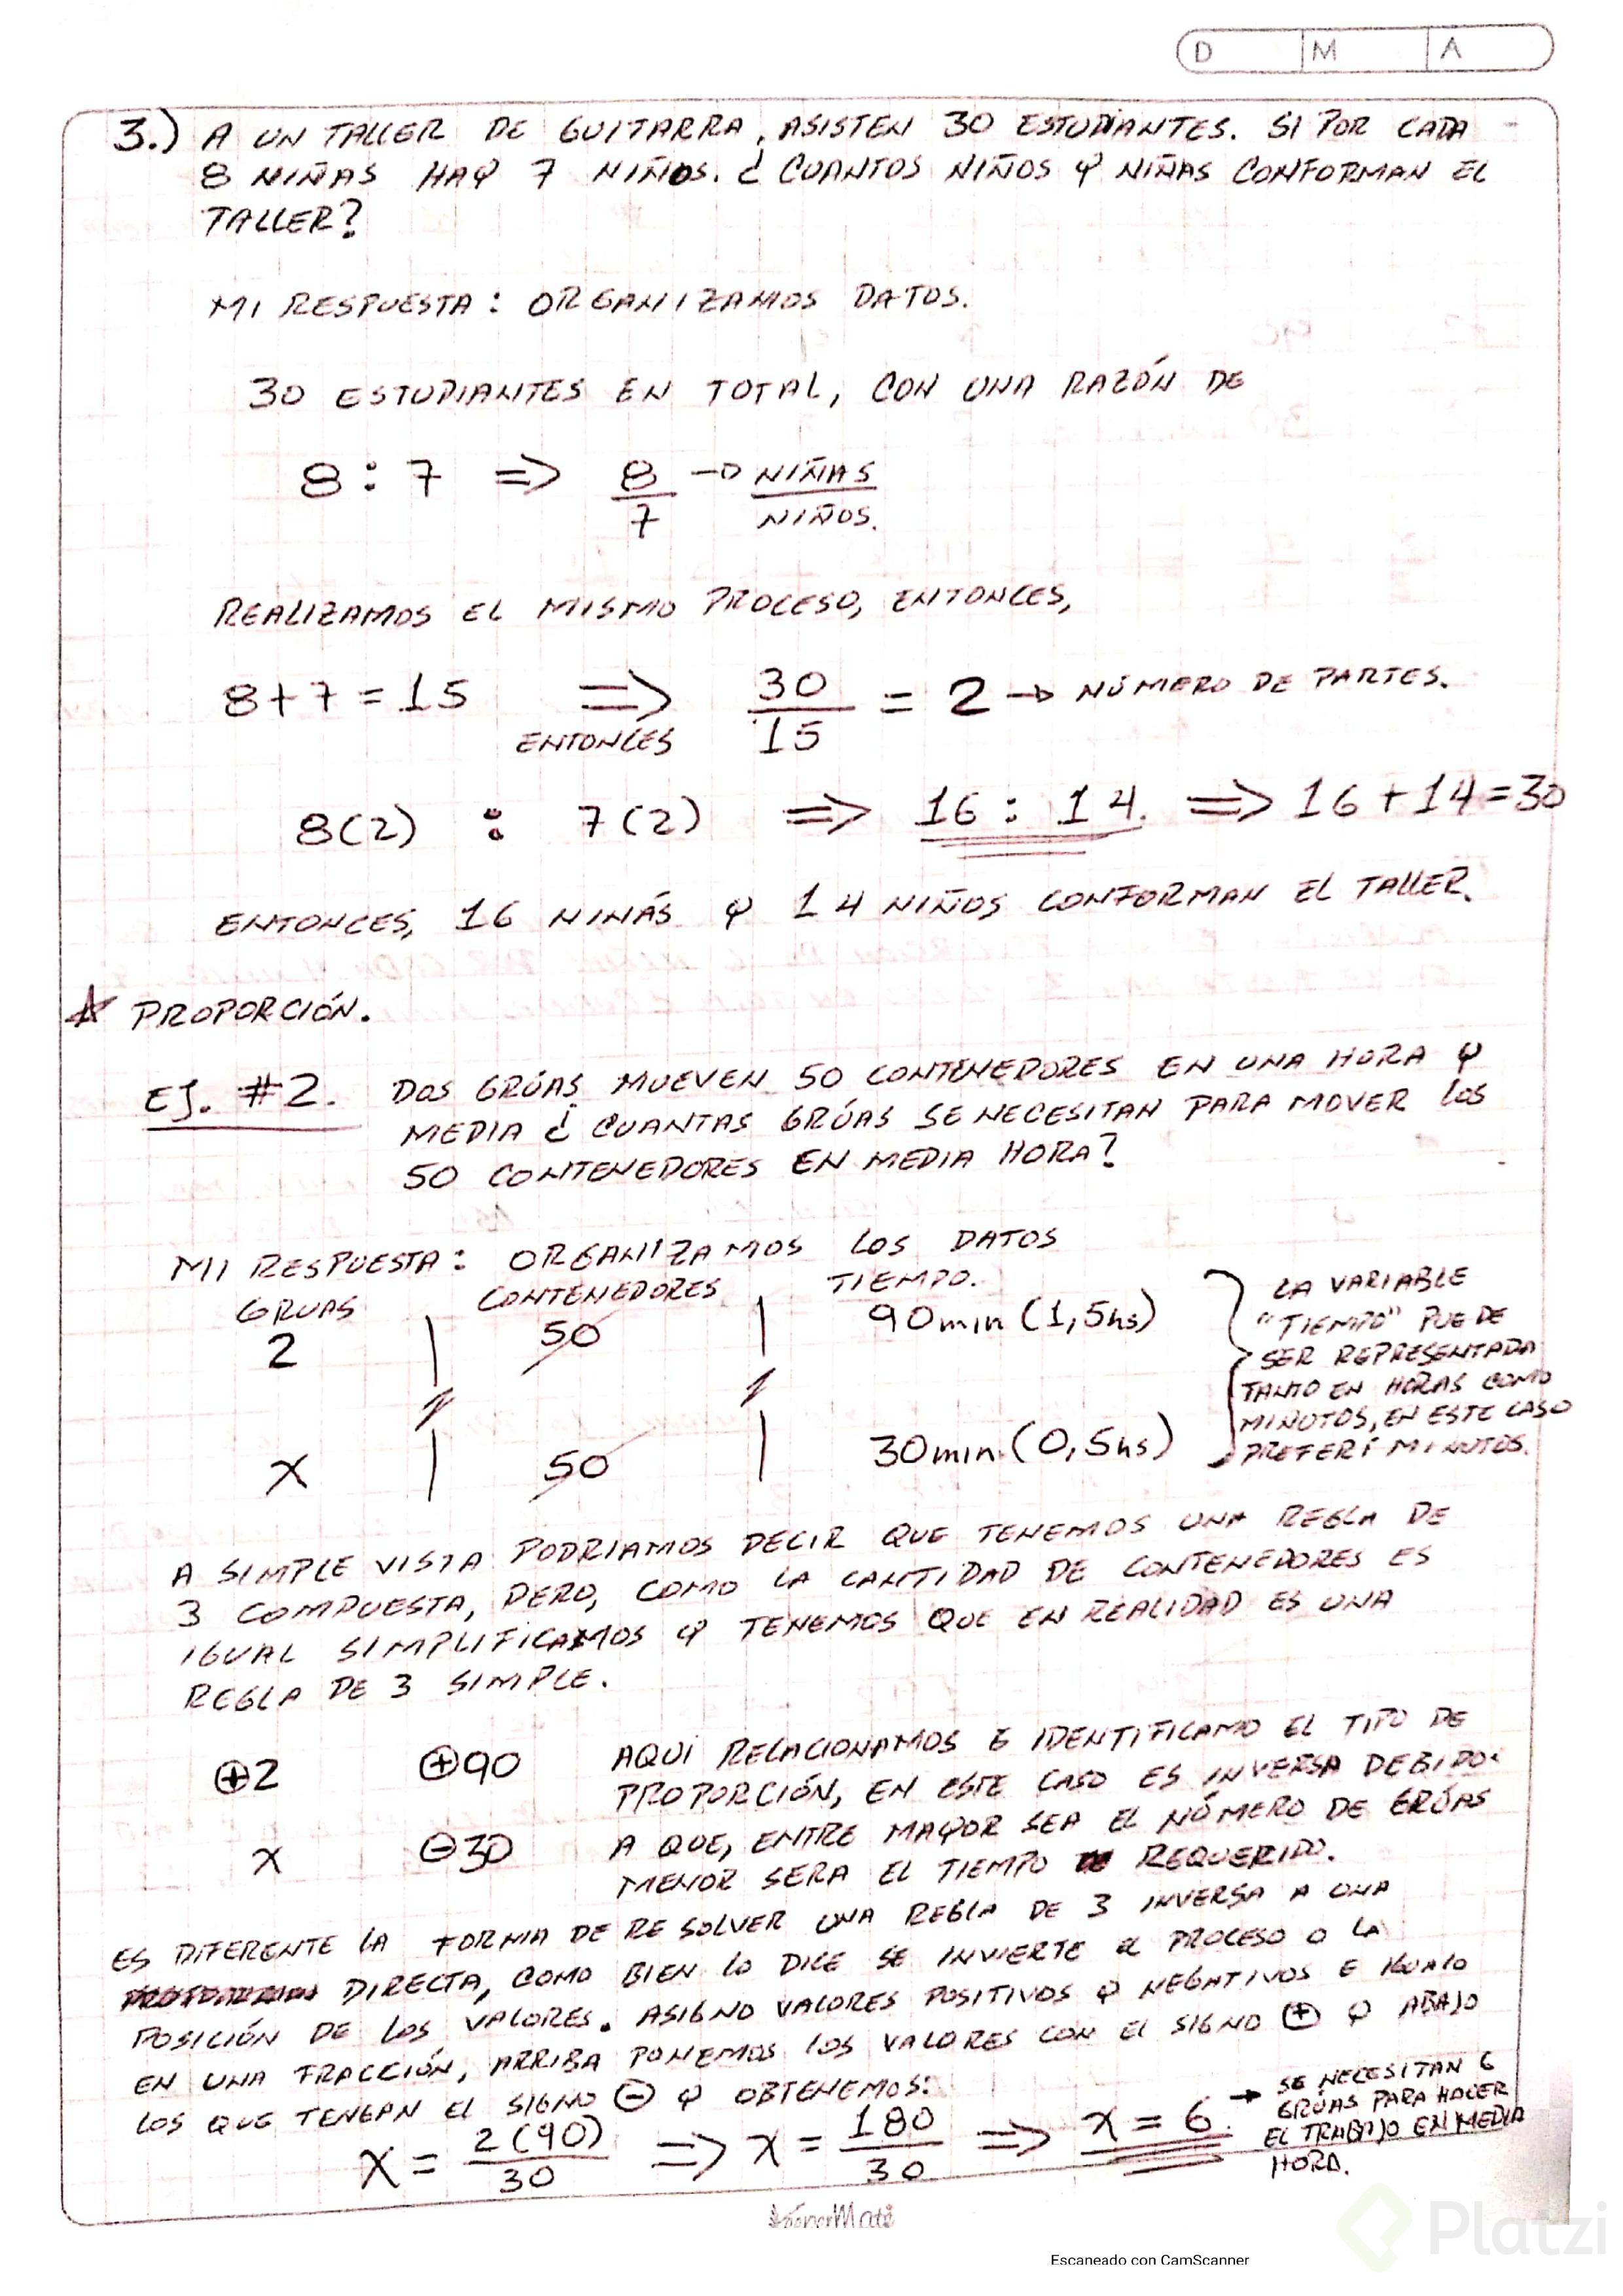 D M A
3.) A UN TALLER DE GUITARRA, ASISTEN 30 ESTUDIANTES. SI POR CADA
8 NIÑAS HAY 7 NIÑOS. ¿ CUANTOS NIÑOS Y NIÑAS CONFORMAN EL
TALLER?
MI RESPUESTA: ORGANIZAMOS DATOS.
30 ESTUDIANTES EN TOTAL, CON UNA RAZÓN DE
8 : 7 => 8/7 → NIÑAS/NIÑOS.
REALIZAMOS EL MISMO PROCESO, ENTONCES,
8+7=15 => ENTONCES 30/15 = 2 → NÚMERO DE PARTES.
8(2) : 7(2) => 16 : 14. => 16+14=30
ENTONCES, 16 NINÁS Y 14 NIÑOS CONFORMAN EL TALLER.
* PROPORCIÓN.
EJ. #2. DOS GRÚAS MUEVEN 50 CONTENEDORES EN UNA HORA Y
MEDIA ¿ CUANTAS GRÚAS SE NECESITAN PARA MOVER LOS
50 CONTENEDORES EN MEDIA HORA?
MI RESPUESTA: ORGANIZAMOS LOS DATOS
GRUAS CONTENEDORES TIEMPO.
2 | 50 | 90min (1,5hs)
X | 50 | 30min.(0,5hs)
LA VARIABLE
"TIEMPO" PUEDE
SER REPRESENTADA
TANTO EN HORAS COMO
MINUTOS, EN ESTE CASO
PREFERÍ MINUTOS.
A SIMPLE VISTA PODRIAMOS DECIR QUE TENEMOS UNA REGLA DE
3 COMPUESTA, PERO, COMO LA CANTIDAD DE CONTENEDORES ES
IGUAL SIMPLIFICAMOS Y TENEMOS QUE EN REALIDAD ES UNA
REGLA DE 3 SIMPLE.
⊕2 ⊕90
X ⊖30
AQUÍ RELACIONAMOS E IDENTIFICAMO EL TIPO DE
PROPORCIÓN, EN ESTE CASO ES INVERSA DEBIDO
A QUE, ENTRE MAYOR SEA EL NÚMERO DE GRÚAS
MENOR SERA EL TIEMPO REQUERIDO.
ES DIFERENTE LA FORMA DE RESOLVER UNA REGLA DE 3 INVERSA A UNA
DIRECTA, COMO BIEN LO DICE SE INVIERTE EL PROCESO O LA
POSICIÓN DE LOS VALORES. ASIGNO VALORES POSITIVOS Y NEGATIVOS E IGUALO
EN UNA FRACCIÓN, ARRIBA PONEMOS LOS VALORES CON EL SIGNO ⊕ Y ABAJO
LOS QUE TENGAN EL SIGNO ⊖ Y OBTENEMOS:
X = 2(90)/30 => X = 180/30 => X = 6. → SE NECESITAN 6
GRÚAS PARA HACER
EL TRABAJO EN MEDIA
HORA.
Escaneado con CamScanner
Platzi